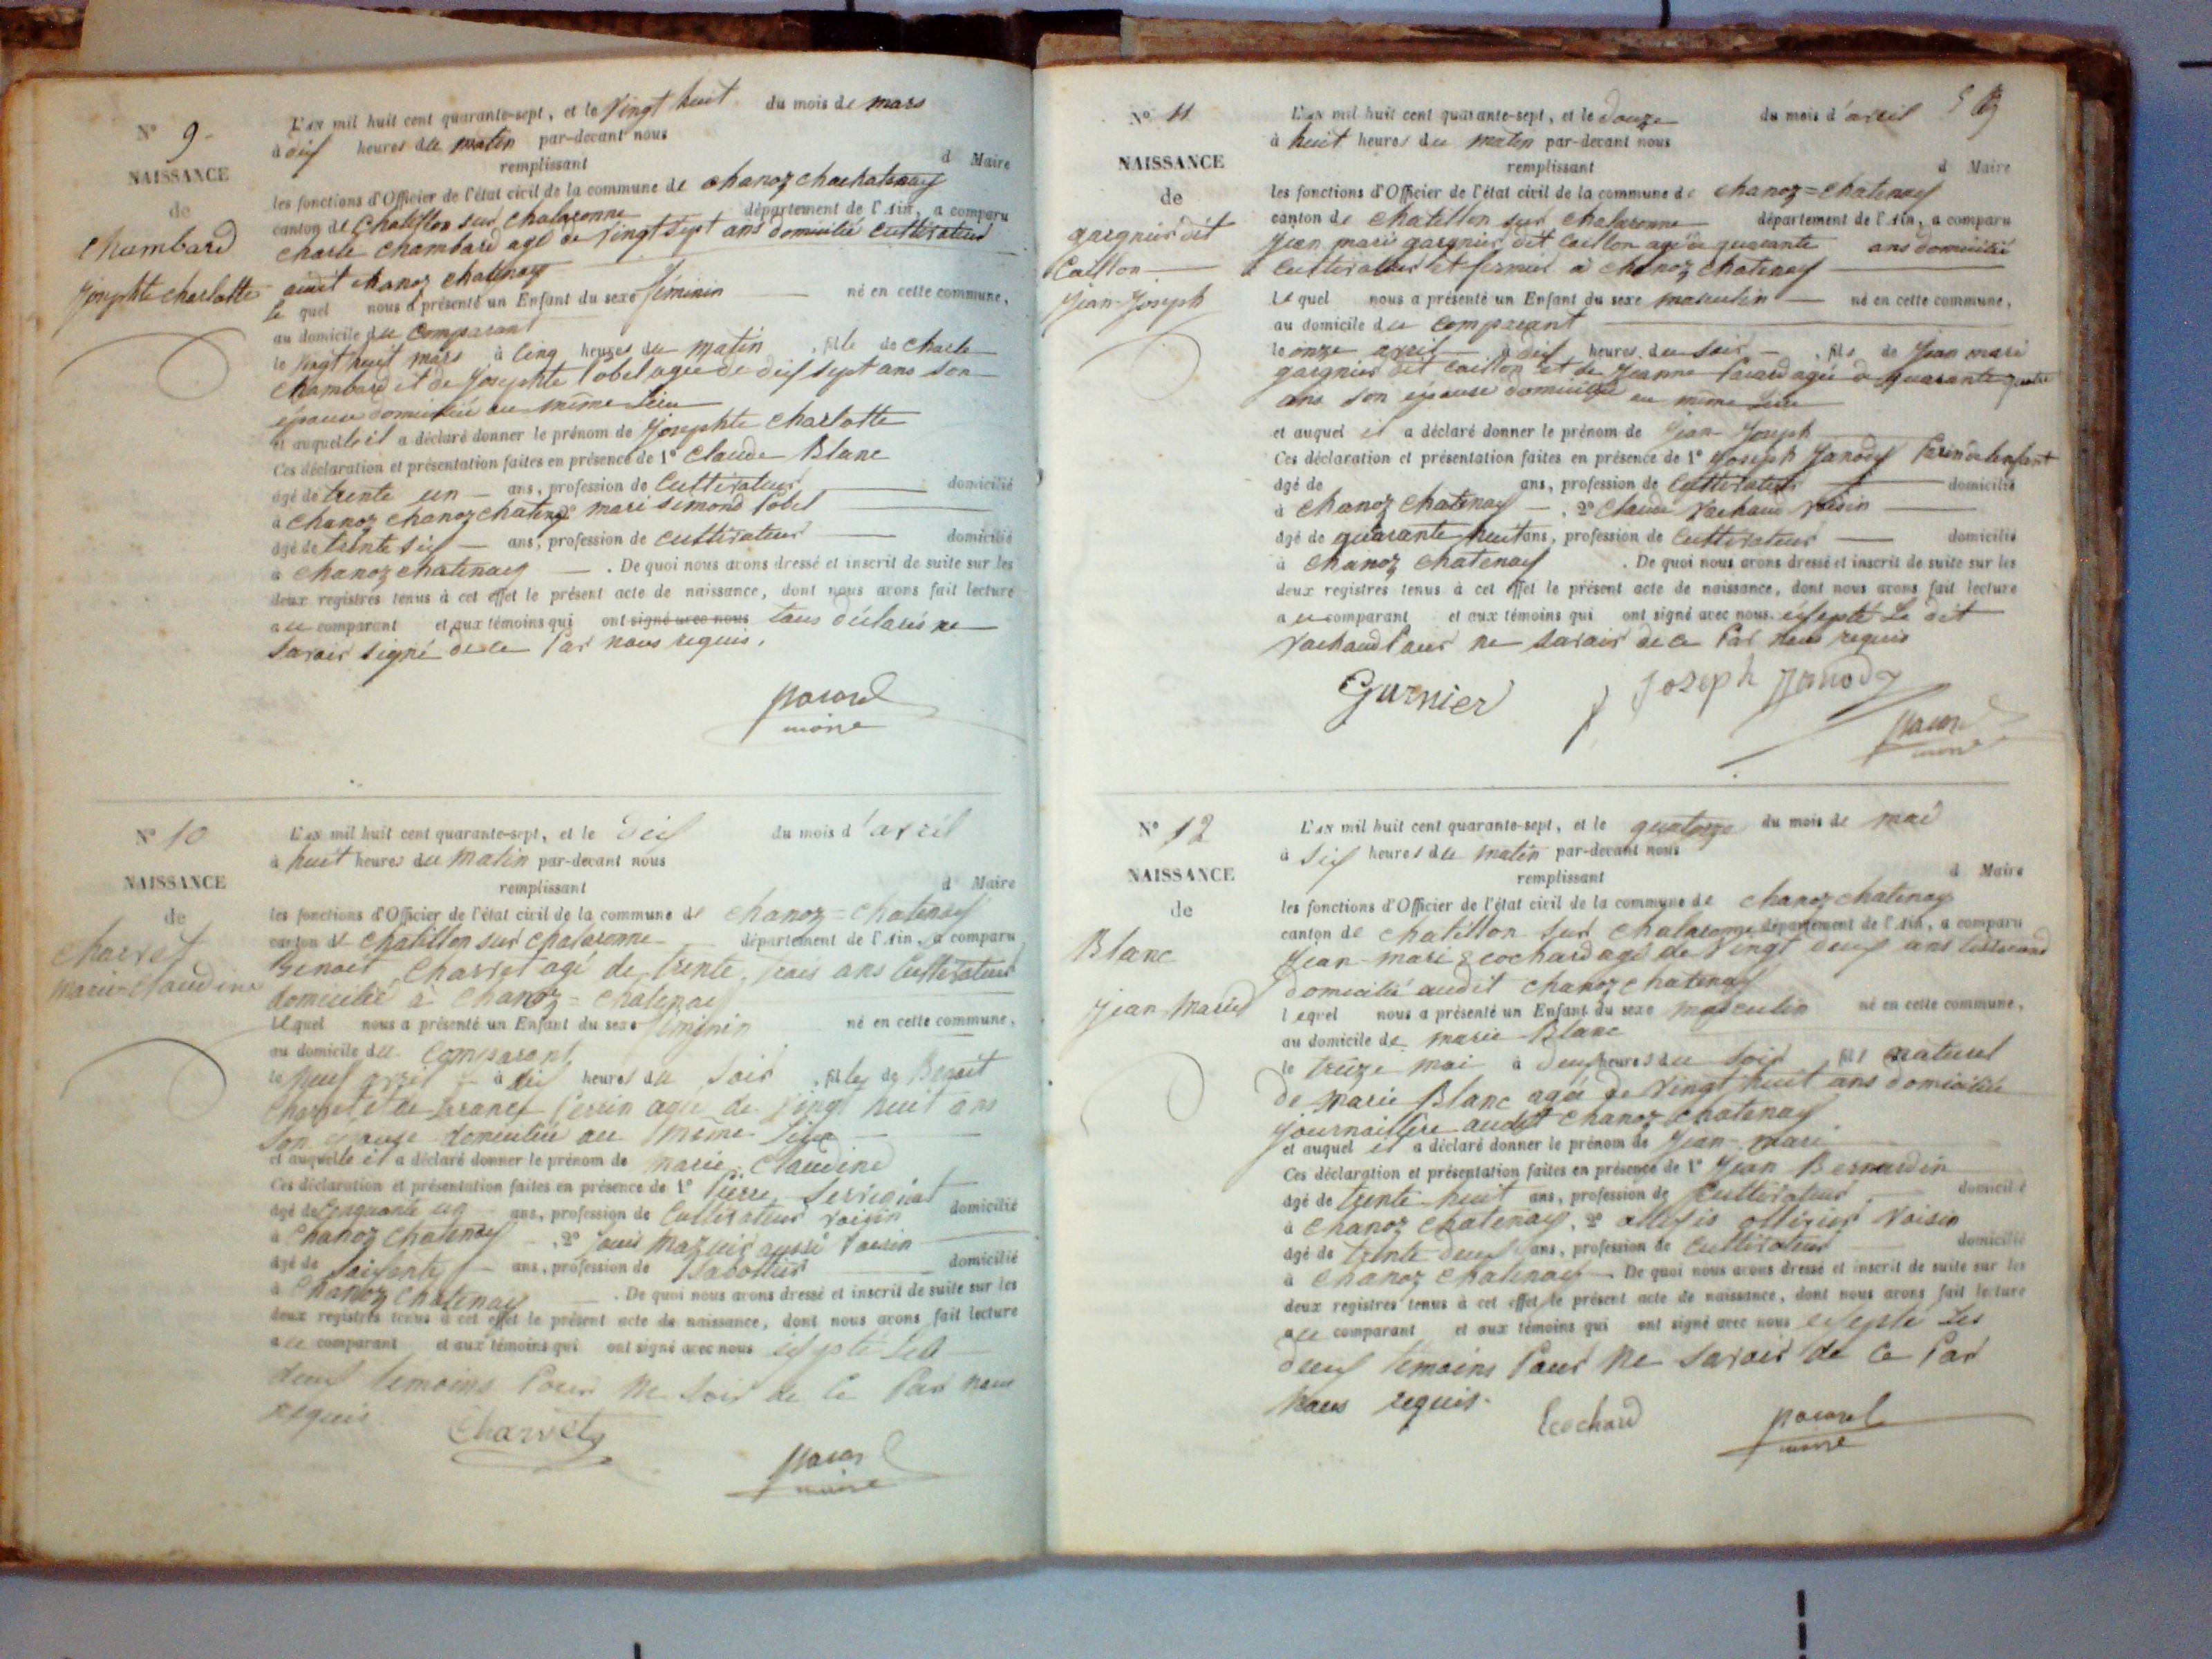 N° 9.
NAISSANCE
de
Chambard
Josephte charlotte
L'AN mil huit cent quarante-sept, et le Vingt huit du mois de mars
à dix heures du matin par-devant nous
remplissant d Maire
les fonctions d'Officier de l'état civil de la commune de chanoz
canton de Chatillon sur Chalaronne département de l'Ain, a comparu
Charle Chambard agé de Vingt sept ans domicilié cultivateur
audit chanoz chatenay
le quel nous a présenté un Enfant du sexe féminin né en cette commune,
au domicile du comparant
le Vingt huit mars à cinq heures du matin, fille de Charle
Chambard et de Josephte Pobel agée de dix sept ans son
épouse domiciliée au même Lieu
et auquelle il a déclaré donner le prénom de Josephte Charlotte
Ces déclaration et présentation faites en présence de 1° Claude Blanc
âgé de trente un ans, profession de Cultivateur domicilié
à chanoz chanoz chatenay 2° mari simond Pobel
âgé de trente six ans, profession de cultivateur domicilié
à chanoz chatenay. De quoi nous avons dressé et inscrit de suite sur les
deux registres tenus à cet effet le présent acte de naissance, dont nous avons fait lecture
au comparant et aux témoins qui ont signé avec nous tous déclarés ne
savoir signé de ce Par nous requis.
pacard
maire
N° 10
NAISSANCE
de
Charvet
marie=Claudine
L'AN mil huit cent quarante-sept, et le dix du mois d'avril
à huit heures du matin par-devant nous
remplissant d Maire
les fonctions d'Officier de l'état civil de la commune de chanoz=chatenay
canton de chatillon sur chalaronne département de l'Ain, a comparu
Benoit Charvet agé de trente trois ans Cultivateur
domicilié à Chanoz=chatenay
lequel nous a présenté un Enfant du sexe féminin né en cette commune,
au domicile du comparant
le neuf avril à dix heures du soir, fille de Benoit
Charvet et de Perrin agée de Vingt huit ans
son épouse domiciliée au même Lieu
et auquelle il a déclaré donner le prénom de marie Claudine
Ces déclaration et présentation faites en présence de 1° Pierre
âgé de Cinquante un ans, profession de Cultivateur voisin domicilié
à Chanoz Chatenay, 2° Louis aussi voisin
âgé de soixante ans, profession de Sabottier domicilié
à Chanoz Chatenay. De quoi nous avons dressé et inscrit de suite sur les
deux registres tenus à cet effet le présent acte de naissance, dont nous avons fait lecture
au comparant et aux témoins qui ont signé avec nous exsepté Les
deux temoins Pour ne soir de ce Par nous
requis
Charvet
pacard
maire
N° 11
NAISSANCE
de
gargnier dit
Caillon
Jean-Joseph
L'AN mil huit cent quarante-sept, et le douze du mois d'avril 5
à huit heures du matin par-devant nous
remplissant d Maire
les fonctions d'Officier de l'état civil de la commune de chanoz=chatenay
canton de chatillon sur chalaronne département de l'Ain, a comparu
Jean mari gargnier dit Caillon agé de quarante ans domicilié
Cultivateur et fermier à chanoz chatenay
lequel nous a présenté un Enfant du sexe masculin né en cette commune,
au domicile du comparant
le onze avril à dix heures du soir, fils de Jean mari
gargnier dit caillon et de Jeanne Pacard agée de quarante quatre
ans son épouse domiciliée au même Lieu
et auquel il a déclaré donner le prénom de Jean-Joseph
Ces déclaration et présentation faites en présence de 1° Joseph Janody Parin de lenfant
âgé de ans, profession de Cultivateur domicilié
à Chanoz Chatenay, 2° Claude Vachaud Voisin
âgé de quarante huit ans, profession de Cultivateur domicilié
à Chanoz chatenay. De quoi nous avons dressé et inscrit de suite sur les
deux registres tenus à cet effet le présent acte de naissance, dont nous avons fait lecture
au comparant et aux témoins qui ont signé avec nous exsepté Le dit
Vachaud Pour ne savoir de ce Par nous requis
Garnier
Joseph Janody
pacard
maire
N° 12
NAISSANCE
de
Blanc
Jean Marie
L'AN mil huit cent quarante-sept, et le quatorze du mois de mai
à six heures du matin par-devant nous
remplissant d Maire
les fonctions d'Officier de l'état civil de la commune de chanoz chatenay
canton de chatillon sur chalaronne département de l'Ain, a comparu
Jean-mari Ecochard agé de Vingt deux ans tisserand
domicilié audit chanoz chatenay
lequel nous a présenté un Enfant du sexe masculin né en cette commune,
au domicile de marie Blanc
le treize mai à deux heures du soir, fils naturel
de marie Blanc agée de Vingt huit ans domiciliée
journaillère audit chanoz chatenay
et auquel il a déclaré donner le prénom de Jean-mari
Ces déclaration et présentation faites en présence de 1° Jean Bernardin
âgé de trente huit ans, profession de Cultivateur, domicilié
à chanoz chatenay, 2° allexis ollivier Voisin
âgé de trente deux ans, profession de Cultivateur domicilié
à chanoz chatenay. De quoi nous avons dressé et inscrit de suite sur les
deux registres tenus à cet effet le présent acte de naissance, dont nous avons fait lecture
au comparant et aux témoins qui ont signé avec nous exsepté Les
deux temoins Pour ne savoir de ce Par
nous requis.
Ecochard
pacard
maire